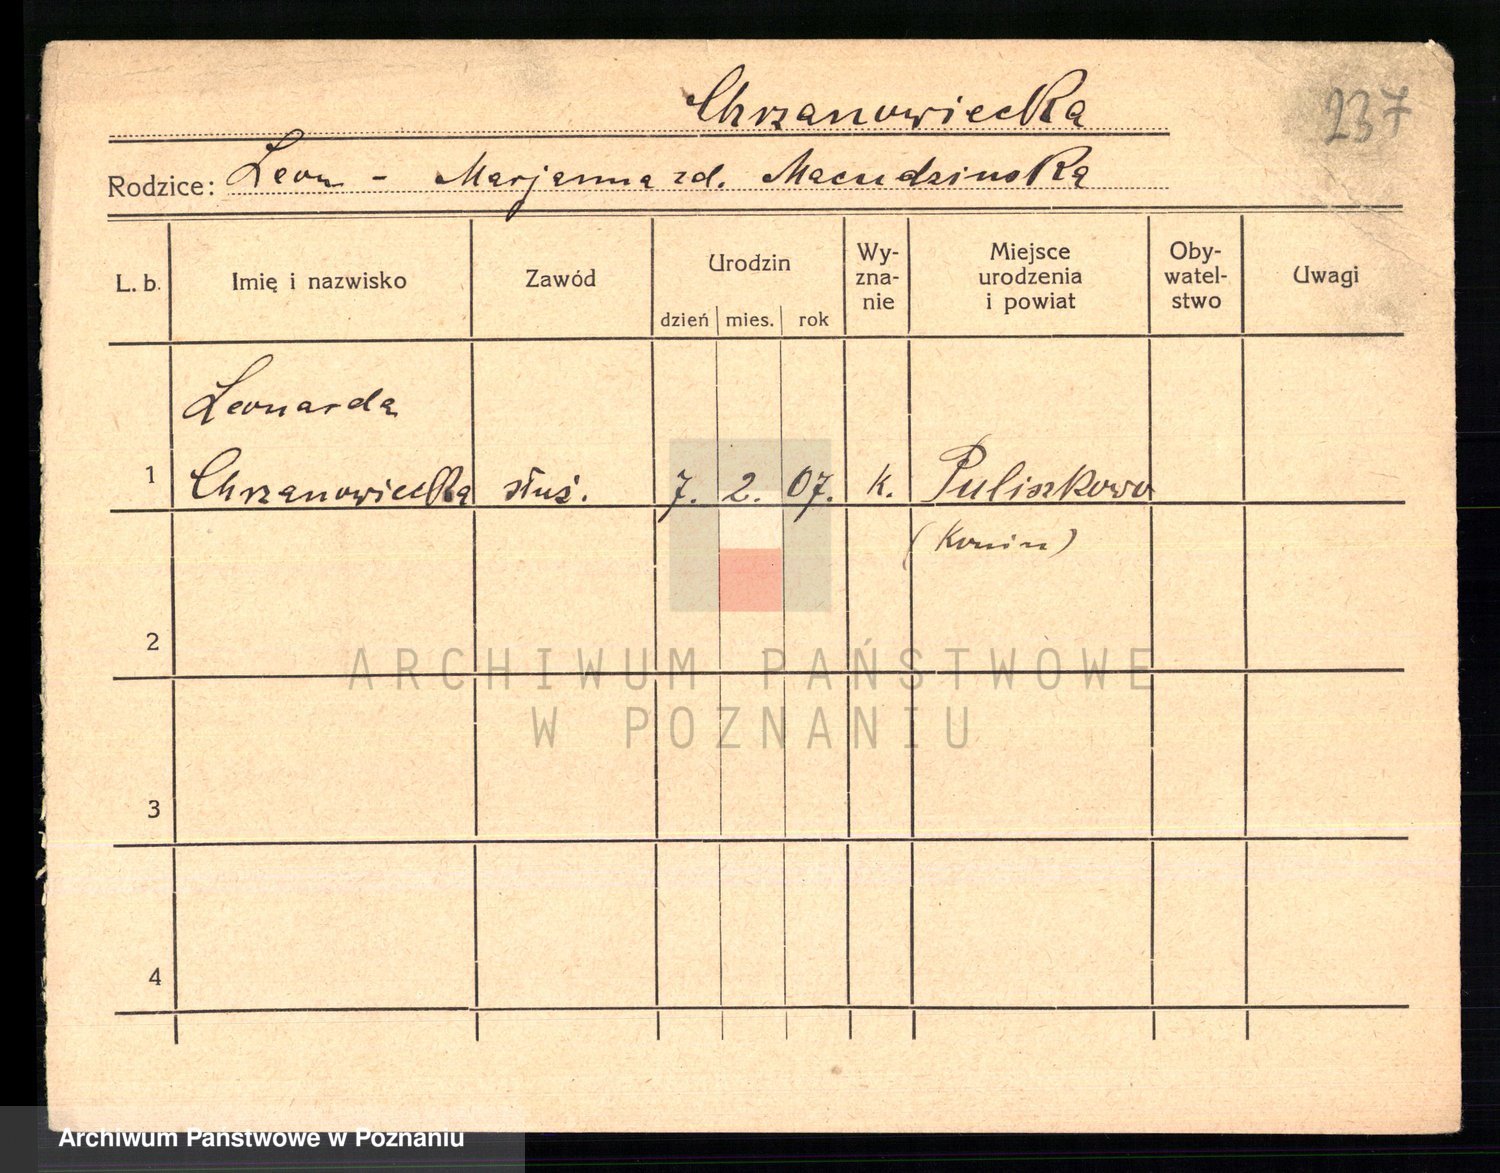 Chrzanowiecka
237
Rodzice: Leon - Marjanna zd. Macudzińska
L. b. Imię i nazwisko Zawód Urodzin dzień mies. rok Wy-zna-nie Miejsce urodzenia i powiat Oby-watel-stwo Uwagi
Leonarda
1 Chrzanowiecka służ. 7. 2. 07. k. Puliszkowo
(Konin)
2
ARCHIWUM PAŃSTWOWE
W POZNANIU
3
4
Archiwum Państwowe w Poznaniu